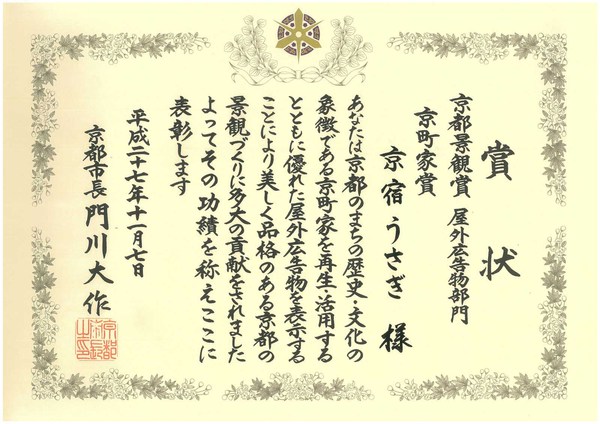 賞状
京都景観賞 屋外広告物部門
京町家賞
京宿うさぎ 様
あなたは京都のまちの歴史・文化の
象徴である京町家を再生・活用する
とともに優れた屋外広告物を表示する
ことにより美しく品格のある京都の
景観づくりに多大の貢献をされました
よってその功績を称えここに
表彰します
平成二十七年十一月七日
京都市長 門川大作
京都市長之印